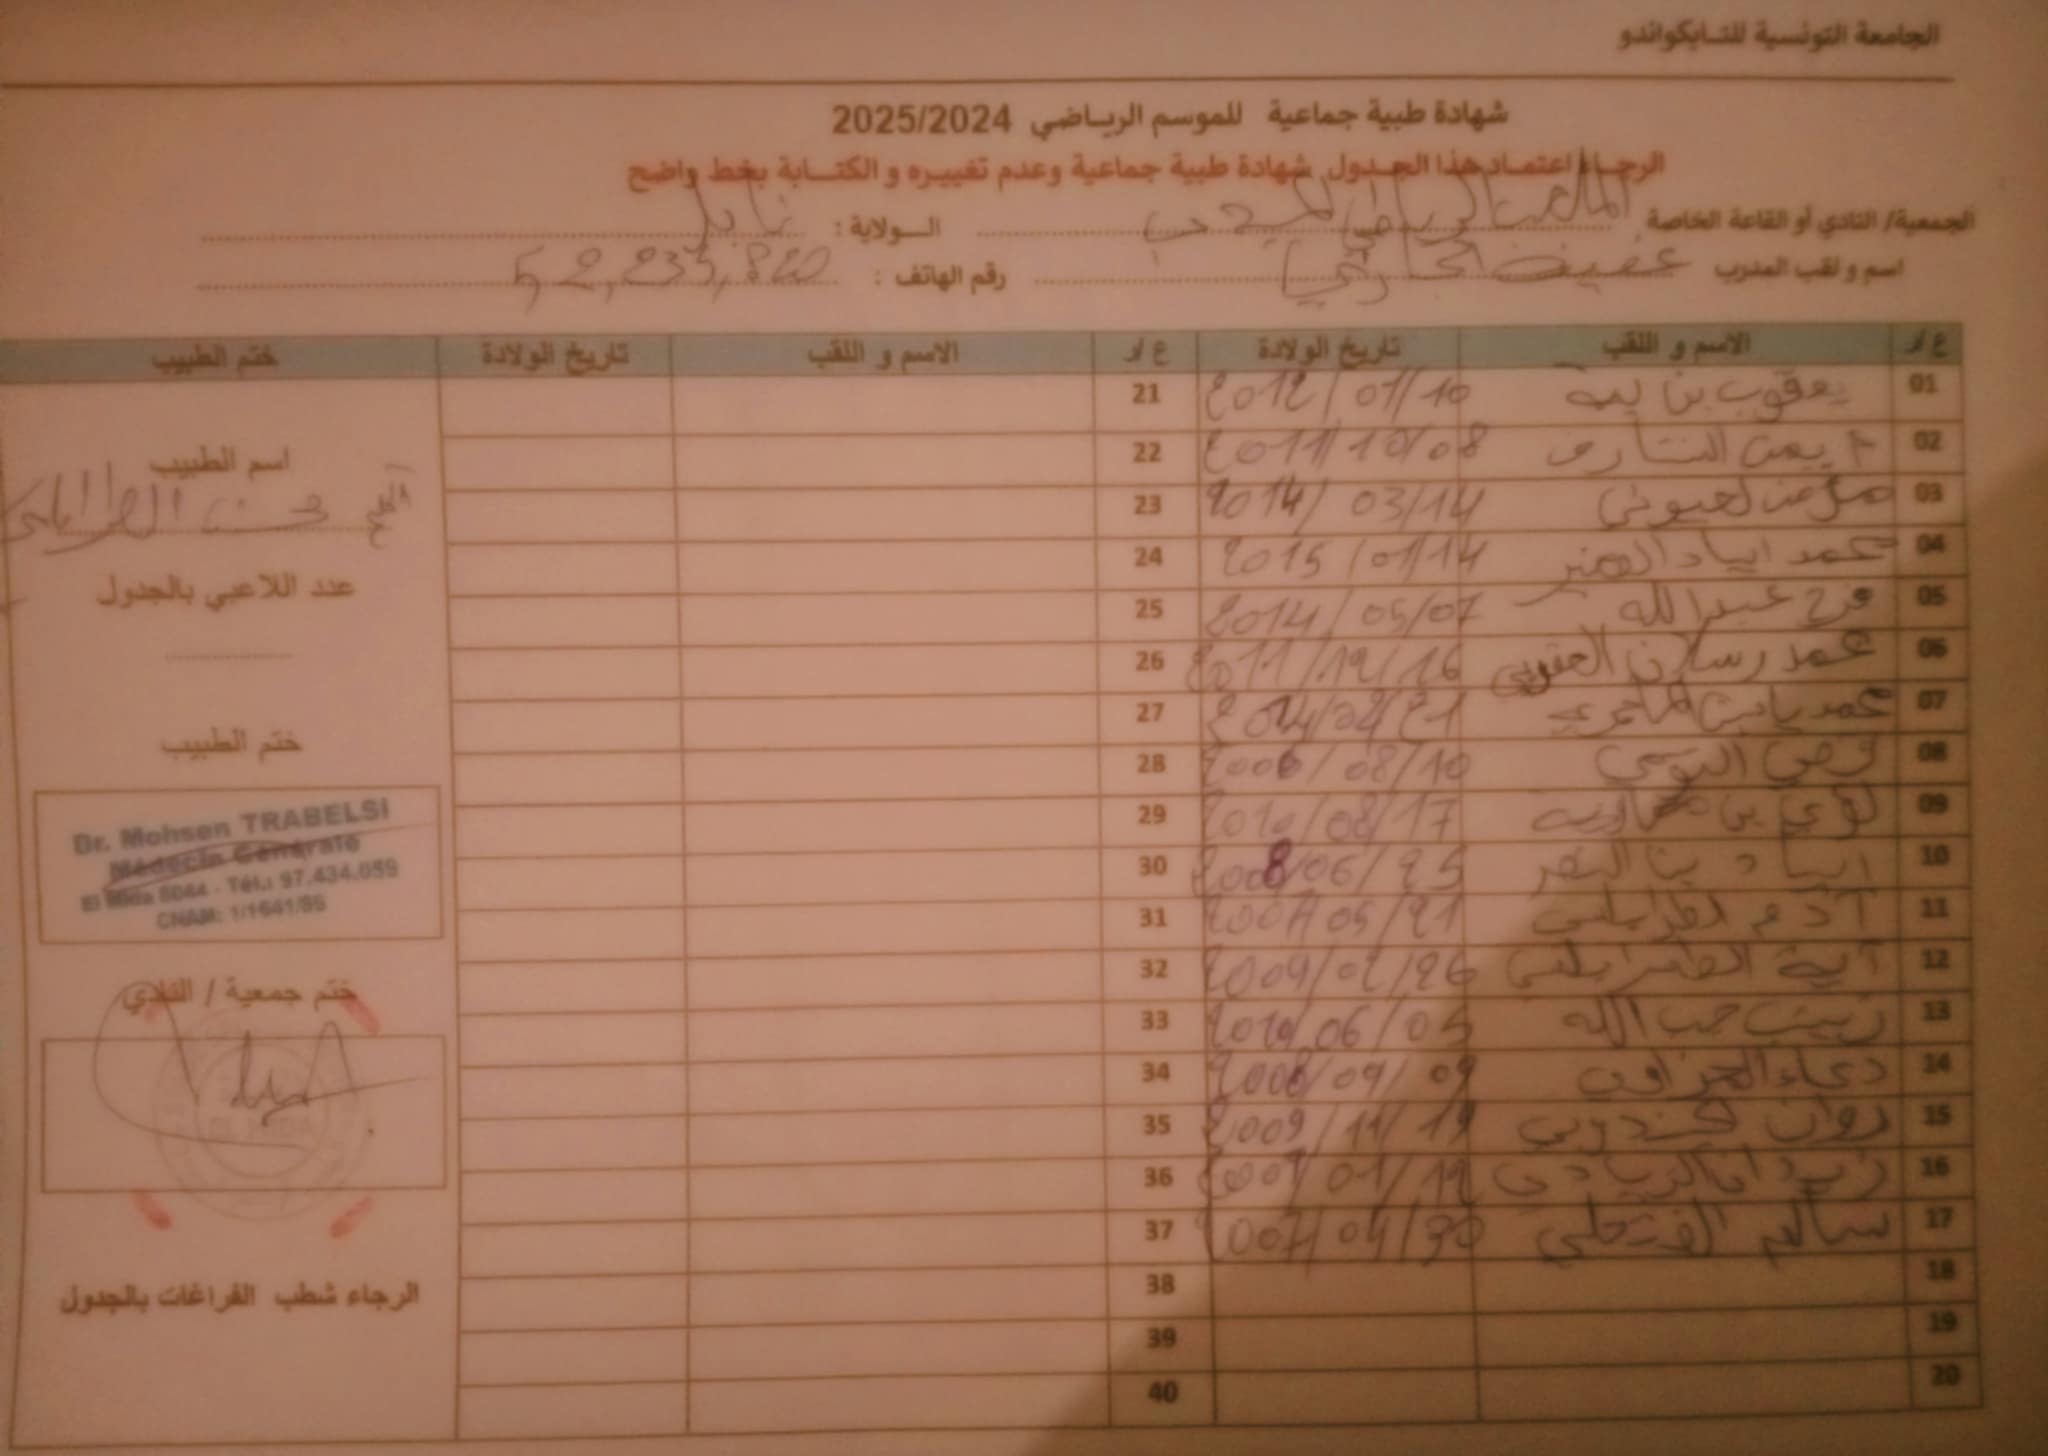 الجامعة التونسية للتايكواندو
شهادة طبية جماعية للموسم الرياضي 2025/2024
الرجاء اعتماد هذا الجدول شهادة طبية جماعية وعدم تغييره و الكتابة بخط واضح
الجمعية/ النادي أو القاعة الخاصة الملعب الرياضي الولاية : نابل
اسم و لقب المدرب عفيف رقم الهاتف : 52,233,820
ع/ر الاسم و اللقب تاريخ الولادة ع/ر الاسم و اللقب تاريخ الولادة ختم الطبيب
01 يعقوب بن 2012/01/10 21
02 2011/10/08 22
اسم الطبيب
03 2014/03/14 23
محسن الطرابلسي
04 محمد اياد 2015/01/14 24
05 فرح عبد الله 2014/05/07 25
عدد اللاعبي بالجدول
06 محمد رسلان 2011/12/16 26
07 محمد ياسين 21 27
08 2006/08/10 28
ختم الطبيب
09 لؤي بن 2010/08/17 29
Dr. Mohsen TRABELSI
Médecin Générale
El Mida 8044 - Tél.: 97.434.059
CNAM: 1/1641/85
10 بن 2008/06/25 30
11 آدم الطرابلسي 2007/05/21 31
12 آية الطرابلسي 2009/02/26 32
13 زينب حب الله 2010/06/05 33
ختم جمعية / النادي
14 دعاء 09/09 34
15 روان 2009/11/19 35
16 2007/01/12 36
17 سالم 2007/04/30 37
18 38
الرجاء شطب الفراغات بالجدول
19 39
20 40